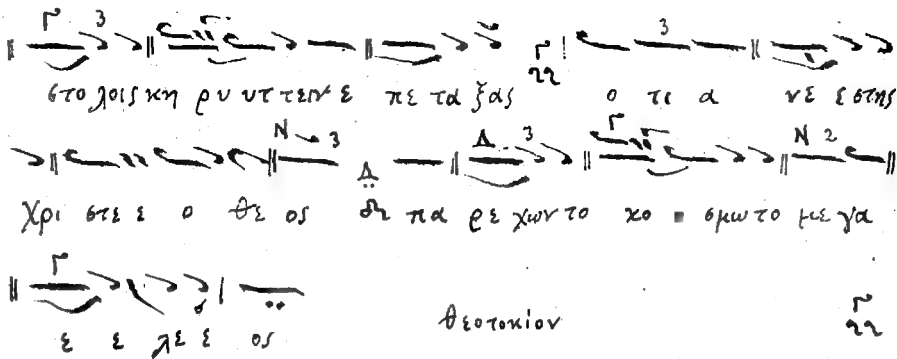 στολοις κη ρυ υτ τειν ε πε τα ξας ο τι α νε ε στης
Χρι στε ε ο θε ος πα ρε χων το κο σμω το με γα
ε ε λε ε ος θεοτοκίον